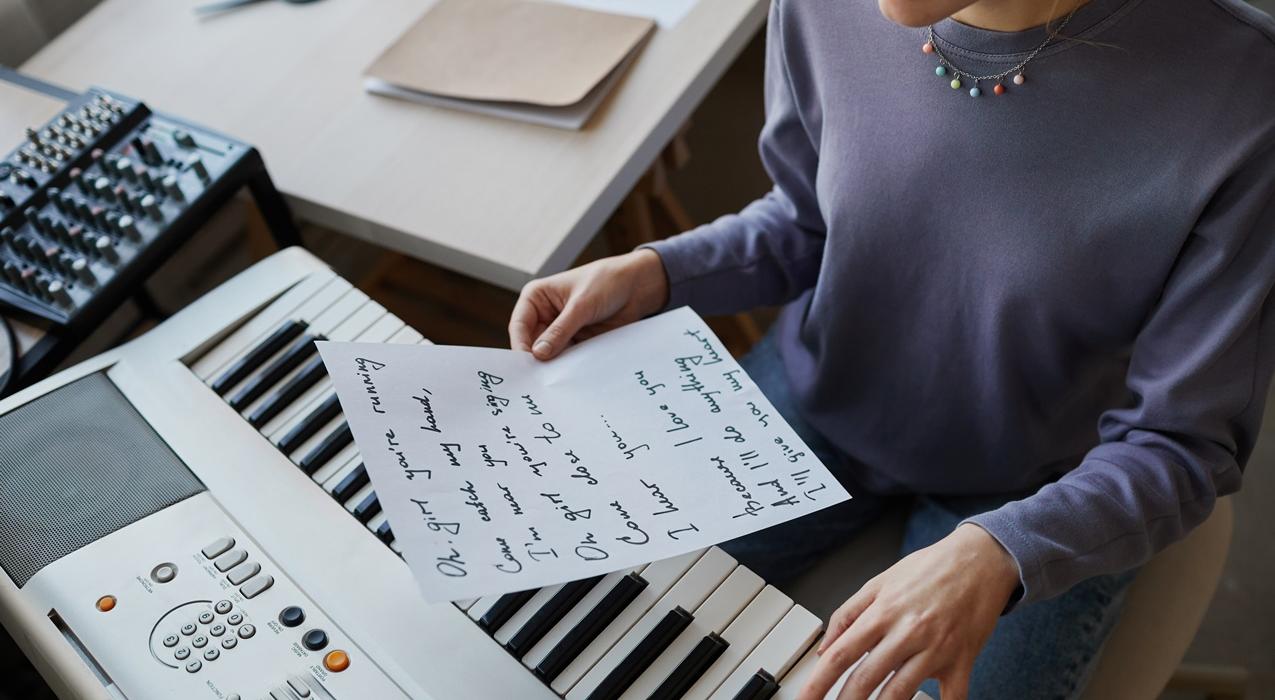 Oh, girl you're running
Come catch my hand,
I'm near you you're
Oh girl close to me
Come
I hear you...
Because I love you
And I'll do anything
I'll give you my heart